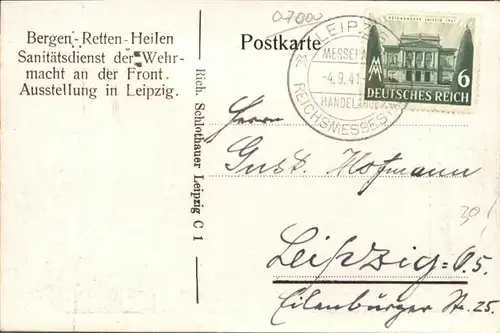 07000
Bergen - Retten - Heilen
Sanitätsdienst der Wehr-
macht an der Front.
Ausstellung in Leipzig.
Rich. Schlothauer Leipzig C 1
Postkarte
LEIPZIG
-4.9.41-
REICHSMESSES
REICHSMESSE LEIPZIG 1941
6
DEUTSCHES REICH
Herrn
Gust. Hofmann
20
Leipzig = O.5.
Eilenburger Str. 25